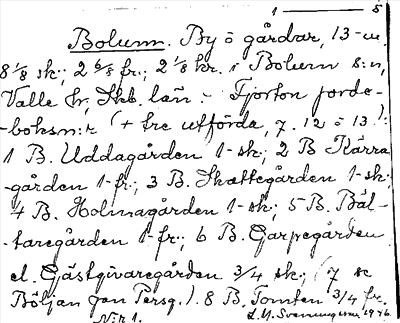 1 — 5
Bolum. By o gårdar, 13-m.
8 1/8 sk.; 2 6/8 fr.; 2 1/8 kr. i Bolum s:n,
Valle hd, Skb. län. - Fjorton jorde-
-boksn:r (+ tre utförda, 7. 12 o 13.):
1 B. Uddagården 1-sk; 2 B Kärra
-gården 1-fr.; 3 B. Skattegården 1-sk
4 B. Holmagården 1-sk; 5 B. Bäl-
-taregården 1-fr.; 6 B. Garpegården
el. Gästgivaregården 3/4 sk; (7 se
Böljan Jon Persg.). 8 B. Tomten 3/4 fr.
Nir 1. 1946.